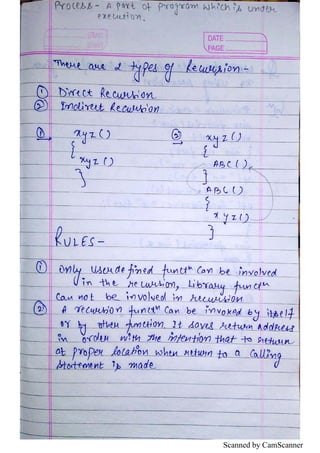 Process - A part of program which is under
execution.
DATE
PAGE
There are 2 types of Recursion -
① Direct Recursion
② Indirect Recursion
① xyz() ② xyz()
{ {
xyz() ABC();
} }
ABC()
{
xyz()
}
RULES -
① Only userdefined functn can be involved
in the recursion, Library functn
can not be involved in recursion
② A recursion functn can be invoked by itself
or by other function. It saves return address
in order with the intention that to return
at proper location when return to a calling
statement is made
Scanned by CamScanner